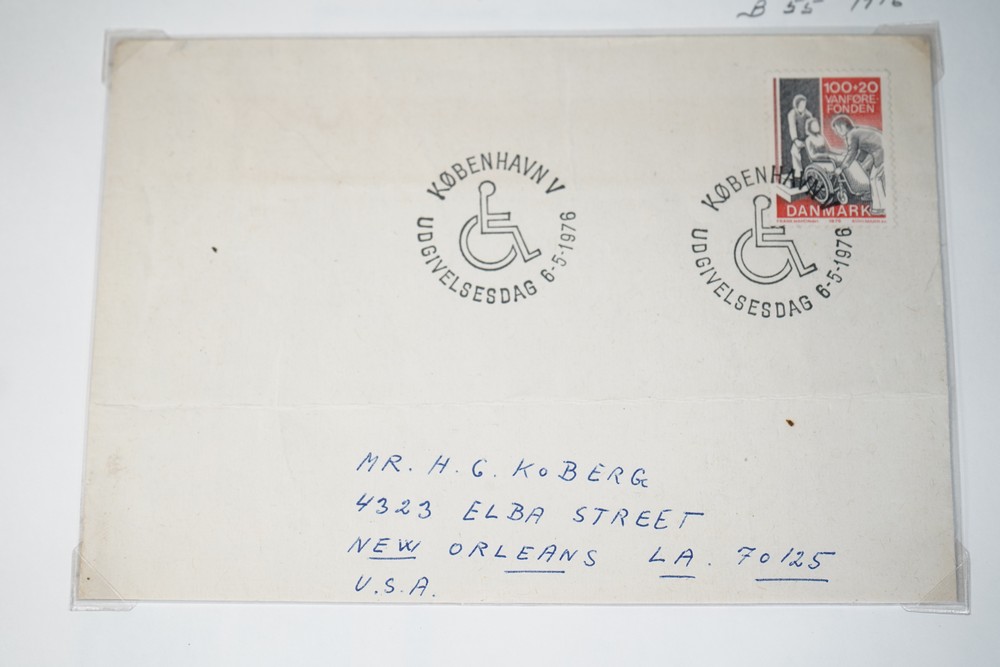 B 55 1976
100+20
VANFØRE-
FONDEN
DANMARK
KØBENHAVN V
UDGIVELSESDAG 6-5-1976
KØBENHAVN V
UDGIVELSESDAG 6-5-1976
MR. H. G. KOBERG
4323 ELBA STREET
NEW ORLEANS LA. 70125
U.S.A.